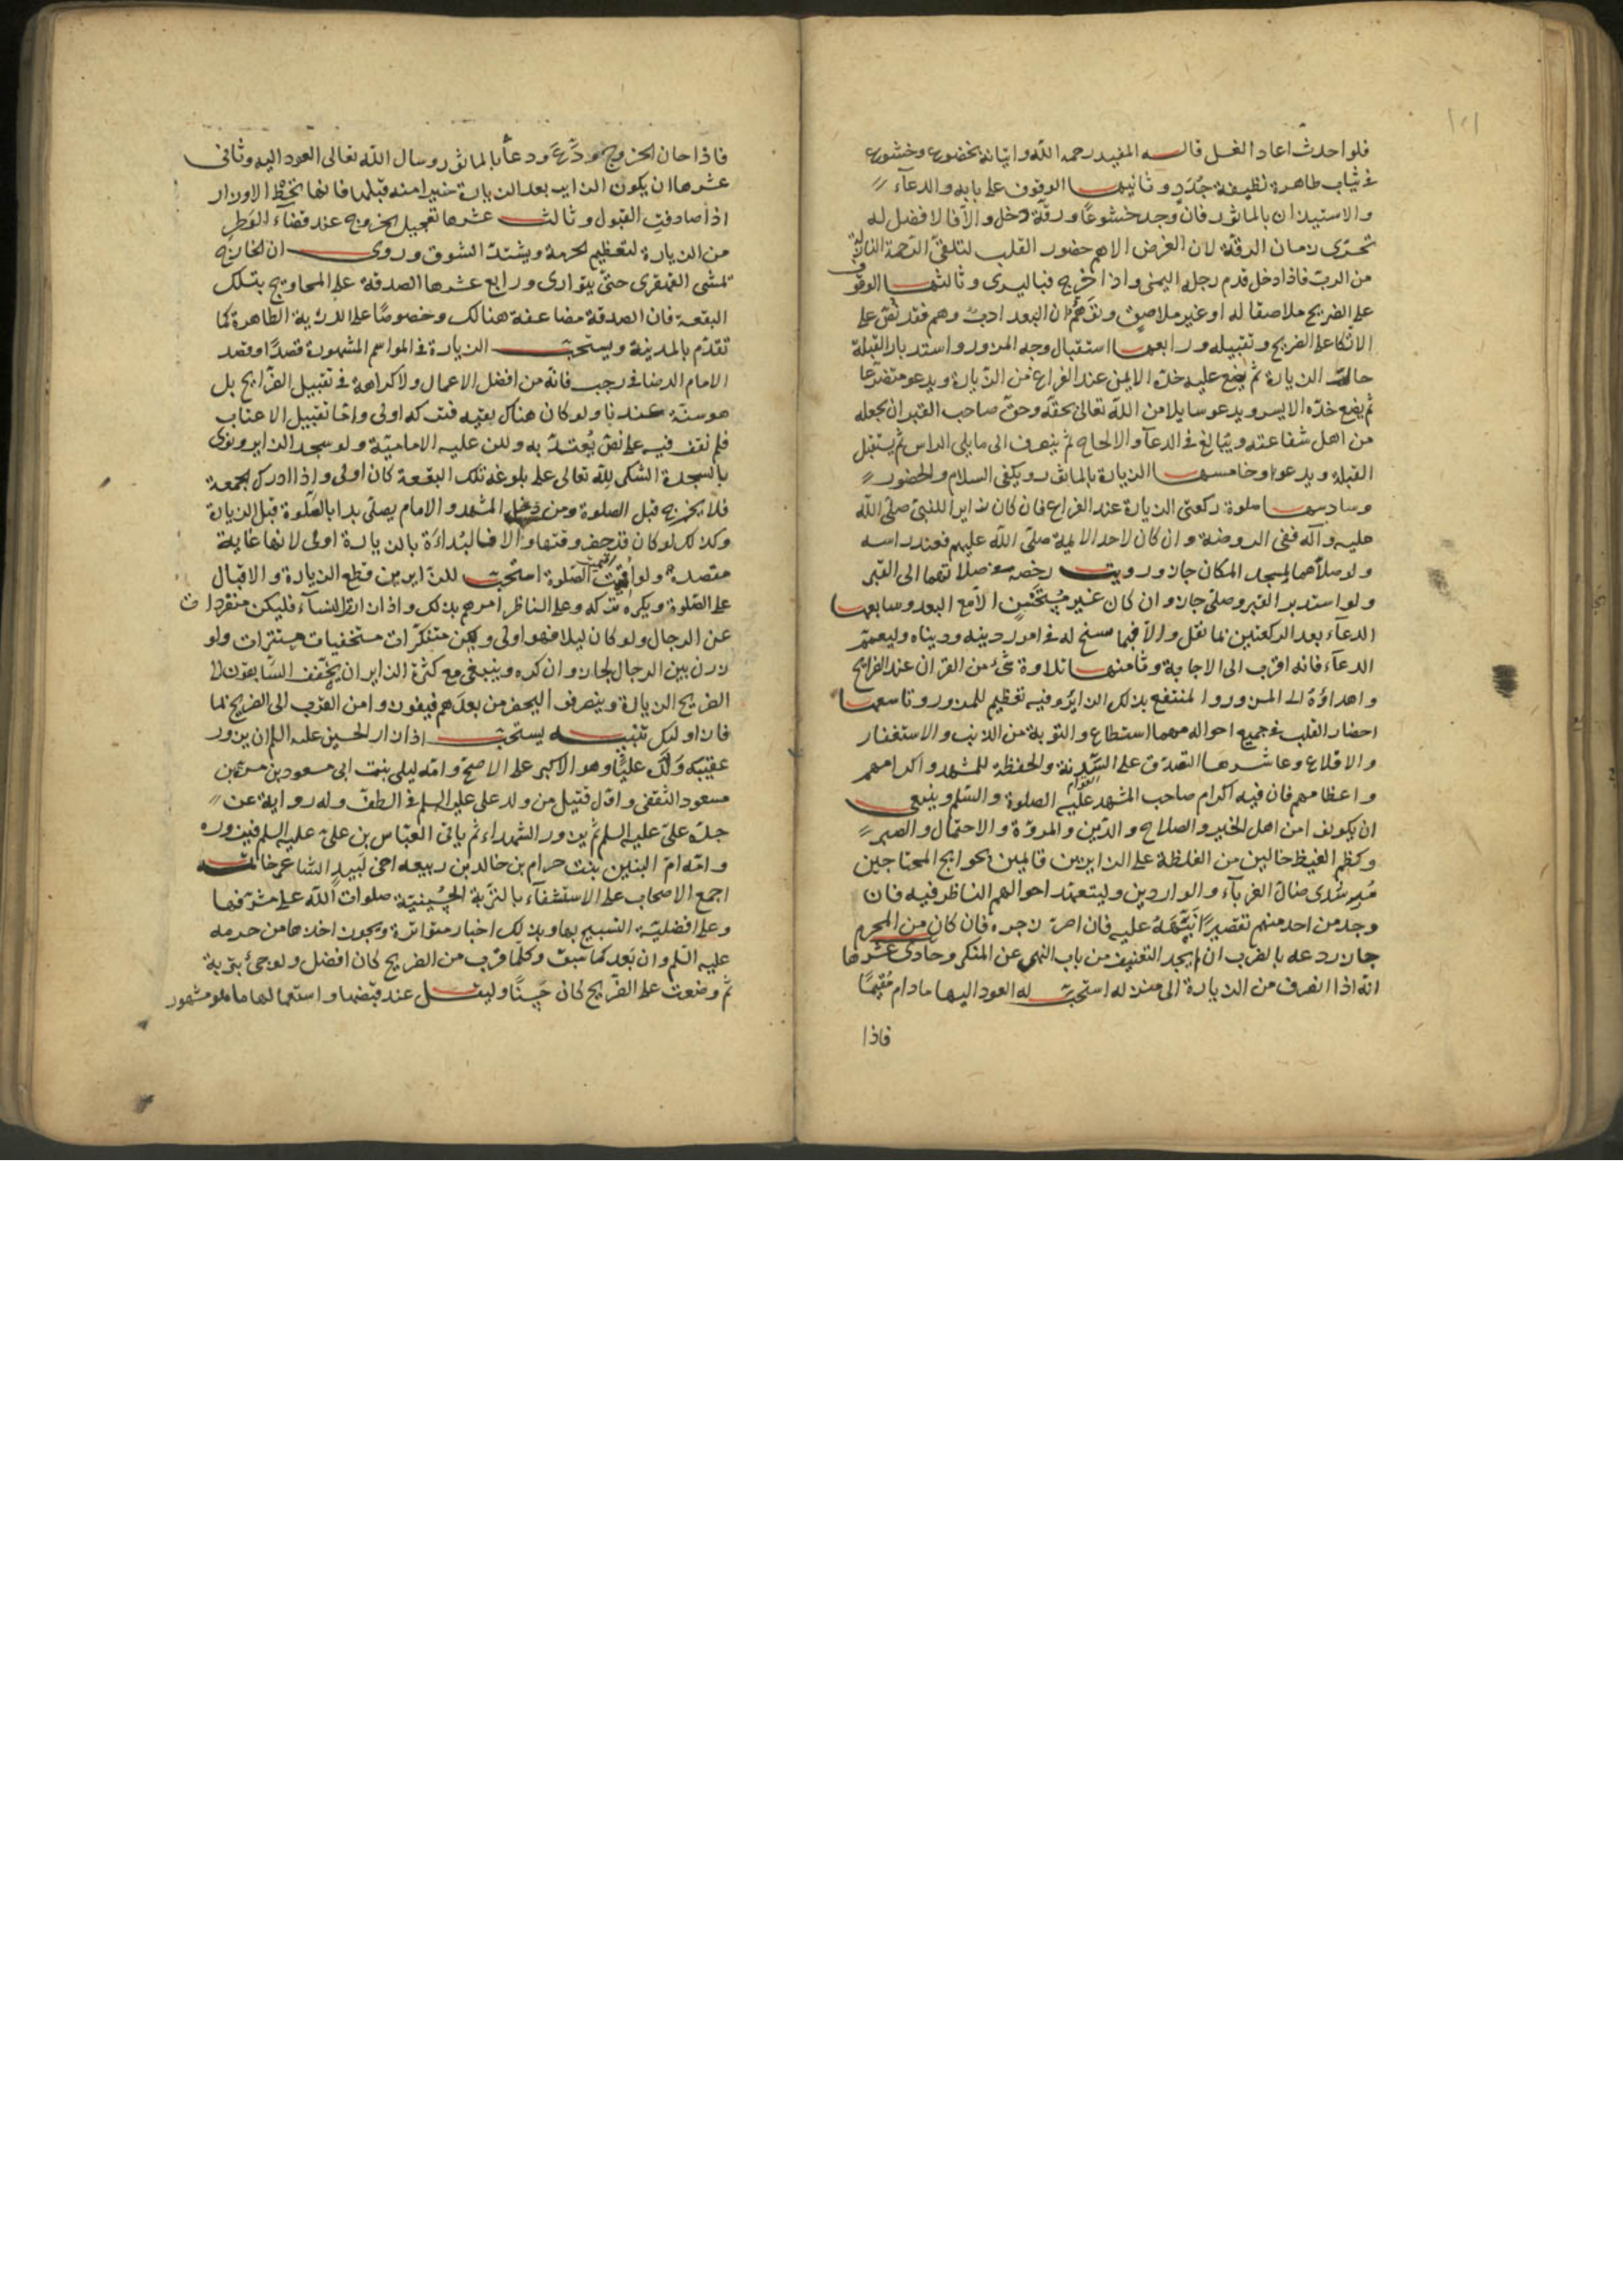 فلو احدث اعاد الغسل قاله المفيد رحمه الله واتيانه بخضوع وخشوع
في ثياب طاهرة نظيفة جُدَدٍ وثانيها الوقوف على بابه والدعاء
والاستيذان بالماثور فان وجد خشوعًا ورقّة دخل والّا فالافضل له
تحرّى زمان الرقّة لان الغرض الاهم حضور القلب لتلقّى الرّحمة النازلة
من الربّ فاذا دخل قدم رجله اليمنى واذا خرج فباليسرى وثالثها الوقوف
على الضريح ملاصقا له او غير ملاصق وتوهّم ان البعد ادب وهم فقد نصّ على
الاتكا على الضريح وتقبيله ورابعها استقبال وجه المزور واستدبار القبلة
حالة الزيارة ثم يضع عليه خدّه الايمن عند الفراغ من الزيارة ويدعو متضرّعا
ثم يضع خدّه الايسر ويدعو سايلا من الله تعالى بحقّه وحقّ صاحب القبر ان يجعله
من اهل شفاعته ويبالغ في الدعاء والالحاح ثم ينصرف الى ما يلي الراس ثم يستقبل
القبلة ويدعوا وخامسها الزيارة بالماثور ويكفى السلام والحضور
وسادسها صلوة ركعتي الزيارة عند الفراغ فان كان زايرا للنبيّ صلّى الله
عليه وآله ففى الروضة وان كان لاحد الايمة صلّى الله عليهم فعند راسه
ولو صلّاهما لمسجد المكان جاز ورويت رخصه في صلاتهما الى القبر
ولو استدبر القبر وصلّى جاز وان كان غير مُستحسنٍ الّا مع البعد وسابعها
الدعاء بعد الركعتين بما نقل والّا فبما سنح له في امور دينه ودنياه وليعمّم
الدعاء فانه اقرب الى الاجابة وثامنها تلاوة شئ من القران عند الضرايح
واهداؤه الى المزور والمنتفع بذلك الزاير وفيه تعظيم للمزور وتاسعها
احضار القلب في جميع احواله مهما استطاع والتوبة من الذنب والاستغفار
والاقلاع وعاشرها التصدّق على السّدنة والحفظة للمشهد واكرامهم
واعظامهم فان فيه اكرام صاحب المشهد عليه الصلوة والسّلم وينبغي
ان يكونف امن اهل الخير والصلاح والدّين والمروّة والاحتمال والصبر
وكظم الغيظ خالين من الغلظة على الزايرين قايمين بحوايج المحتاجين
مُرشدى ضالّ الغرباء والواردين وليتعهّد احوالهم الناظر فيه فان
وجد من احد منهم تقصيرًا نبّهَهُ عليه فان اصرّ زجره فان كان من المحرم
جاز ردعه بالضرب ان لم يجد التعنيف من باب النهى عن المنكر وحادى عشرها
انّه اذا انصرف من الزيارة الى منزله استحبّ له العود اليها ما دام مُقيمًا
فاذا
فاذا حان الخروج ودّع ودعا بالماثور وسال الله تعالى العود اليه وثانى
عشرها ان يكون الزاير بعد الزيارة خيرا منه قبلها فانها تحطّ الاوزار
اذا صادفت القبول وثالث عشرها تعجيل الخروج عند قضاء الوَطَر
من الزيارة لتعظيم الحرمة ويشتدّ الشوق وروى ان الخارج
تمشى القهقرى حتّى يتوارى ورابع عشرها الصدقة على المحاويج بتلك
البقعة فان الصدقة مضاعفة هنالك وخصوصًا على الذرّية الطاهرة كما
تقدّم بالمدينة ويستحبّ الزيارة في المواسم المشهورة قصدًا وقصد
الامام الرضا في رجب فانّه من افضل الاعمال ولا كراهة في تقبيل الضرايح بل
هو سنّة عندنا ولو كان هناك بقيه فتركه اولى وامّا تقبيل الاعتاب
فلم نقف فيه على نصّ يُعتدّ به ولكن عليه الاماميّة ولو سجد الزاير ونوى
بالسجدة الشكر لله تعالى على بلوغه تلك البقعة كان اولى واذا ادرك الجمعة
فلا يخرج قبل الصلوة ومن دخل المشهد والامام يصلّى بدا بالصّلوة قبل الزيارة
وكذلك لو كان قد حضر وقتها والّا فالبُداءَة بالزيارة اولى لانها غاية
مقصده ولو اقيمت الصّلوة استحبّ للزّايرين قطع الزيارة والاقبال
على الصّلوة ويكره تركه وعلى الناظر امرهم بذلك واذا زار النساء فليكن منفردات
عن الرجال ولو كان ليلا فهو اولى وليكنّ متنكّرات مستخفيات مستترات ولو
زرن بين الرجال لجاز وان كره وينبغى مع كثرة الزاير ان يخفّف السّابقون الى
الضريح الزيارة وينصرفوا ليحضر من بعدهم فيفوزوا من القرب الى الضريح بما
فاز اولئك تنبيه يستحبّ اذا زار الحسين عليه السلم ان يزور
عقيبه ولَدَهُ عليًّا وهو الاكبر على الاصحّ وامّه ليلى بنت ابى مسعود بن مرة بن
مسعود الثقفى واوّل قتيل من ولد على عليه السلم في الطفّ وله رواية عن
جدّه علىّ عليه السلم ثم يزور الشهداء ثم ياتى العبّاس بن علىّ عليه السلم فيزوره
وامّه امّ البنين بنت حرام بن خالد بن ربيعه اخى لَبيد الشاعر خاتمة
اجمع الاصحاب على الاستشفاء بالتربة الحُسينيّة صلوات الله على مشرّفها
وعلى افضليّة التسبيح بها وبذلك اخبار متواترة ويجوز اخذها من حرمه
عليه السّلم وان بَعد كما سبق وكلّما قرب من الضريح كان افضل ولو جئ بتربة
ثم وضعت على الضّريح كان حَسنًا وليقل عند قبضها واستعمالها ما هو مشهور